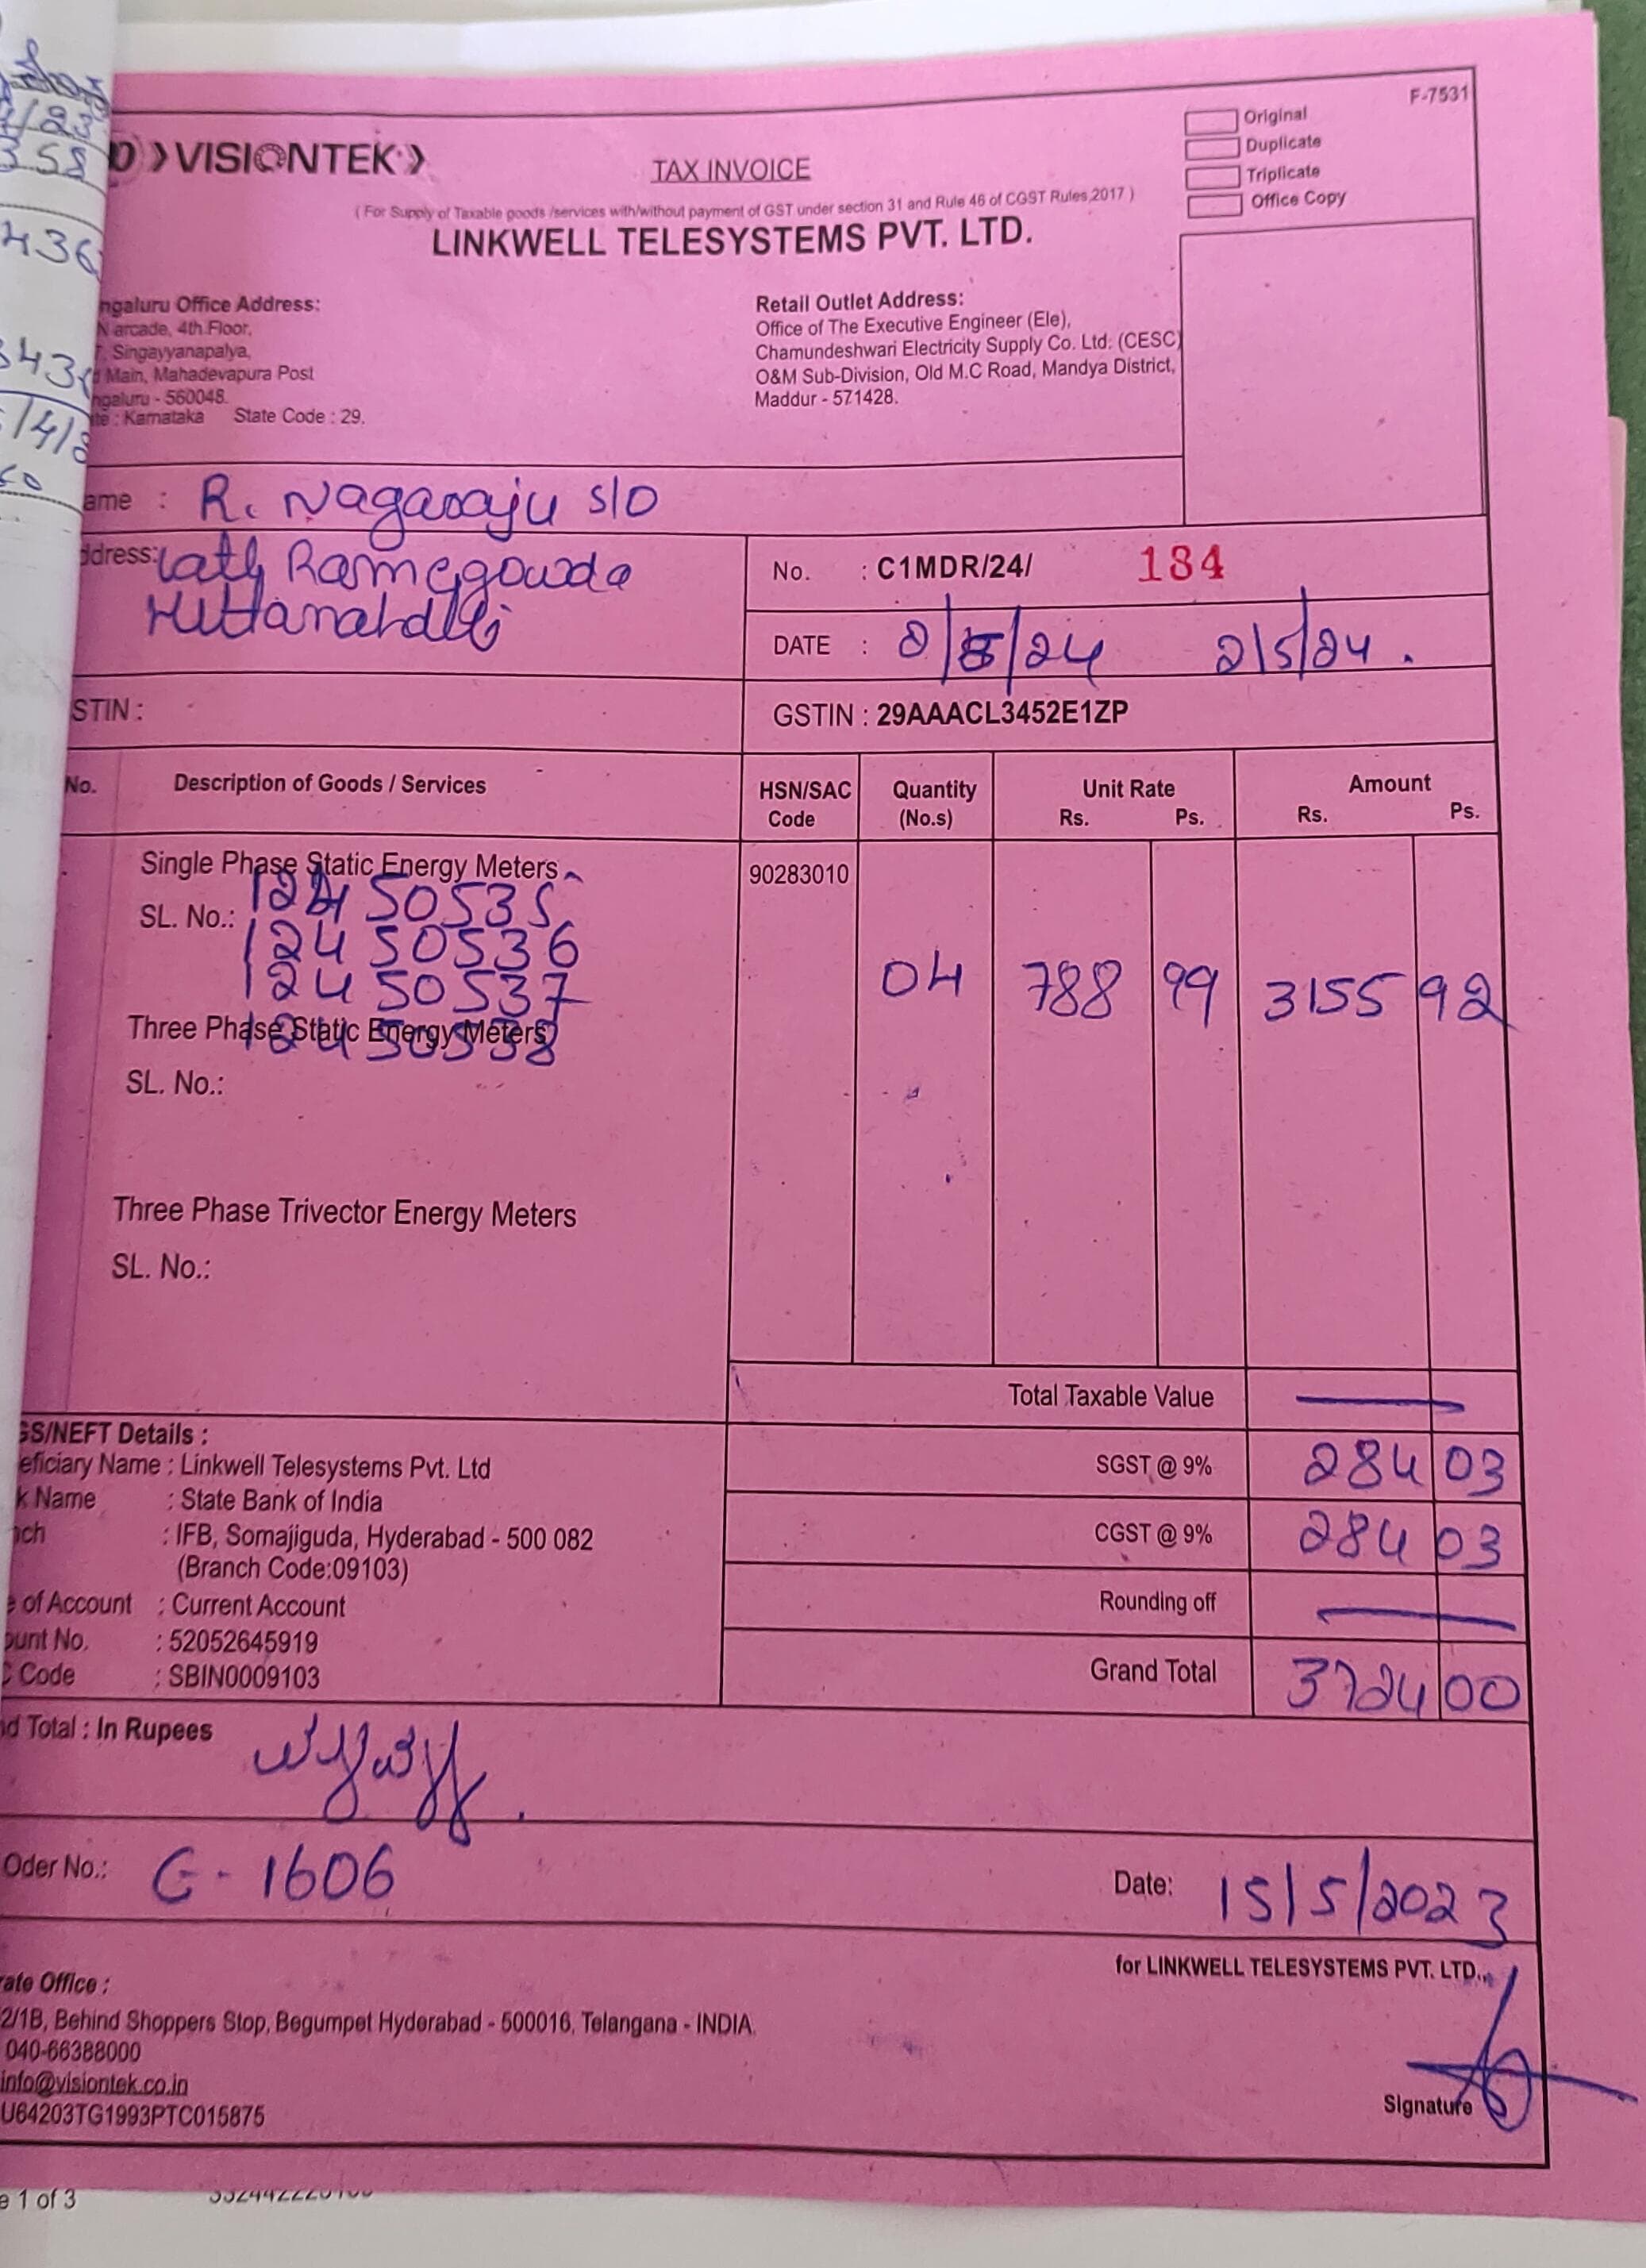 F-7531
Original
Duplicate
Triplicate
Office Copy
VISIONTEK
TAX INVOICE
( For Supply of Taxable goods /services with/without payment of GST under section 31 and Rule 46 of CGST Rules,2017 )
LINKWELL TELESYSTEMS PVT. LTD.
ngaluru Office Address:
N arcade, 4th Floor,
Singayyanapalya,
Main, Mahadevapura Post
ngaluru - 560048.
te : Karnataka State Code : 29.
Retail Outlet Address:
Office of The Executive Engineer (Ele),
Chamundeshwari Electricity Supply Co. Ltd. (CESC)
O&M Sub-Division, Old M.C Road, Mandya District,
Maddur - 571428.
ame : R. Nagaraju S/O
ddress: Ramegowda
No. : C1MDR/24/ 184
DATE : 2/5/24 2/5/24.
STIN :
GSTIN : 29AAACL3452E1ZP
No. Description of Goods / Services HSN/SAC Code Quantity (No.s) Unit Rate Rs. Ps. Amount Rs. Ps.
Single Phase Static Energy Meters 90283010
SL. No.: 12450535
12450536
12450537 04 788 99 3155 92
Three Phase Static Energy Meters
12450538
SL. No.:
Three Phase Trivector Energy Meters
SL. No.:
Total Taxable Value
GS/NEFT Details :
eficiary Name : Linkwell Telesystems Pvt. Ltd
SGST @ 9% 284 03
k Name : State Bank of India
nch : IFB, Somajiguda, Hyderabad - 500 082
CGST @ 9% 284 03
(Branch Code:09103)
e of Account : Current Account
Rounding off
ount No. : 52052645919
C Code : SBIN0009103
Grand Total 3724 00
nd Total : In Rupees
Oder No.: G-1606
Date: 15/5/2023
for LINKWELL TELESYSTEMS PVT. LTD.,
rate Office :
2/1B, Behind Shoppers Stop, Begumpet Hyderabad - 500016, Telangana - INDIA
040-66388000
info@visiontek.co.in
U64203TG1993PTC015875
Signature
e 1 of 3